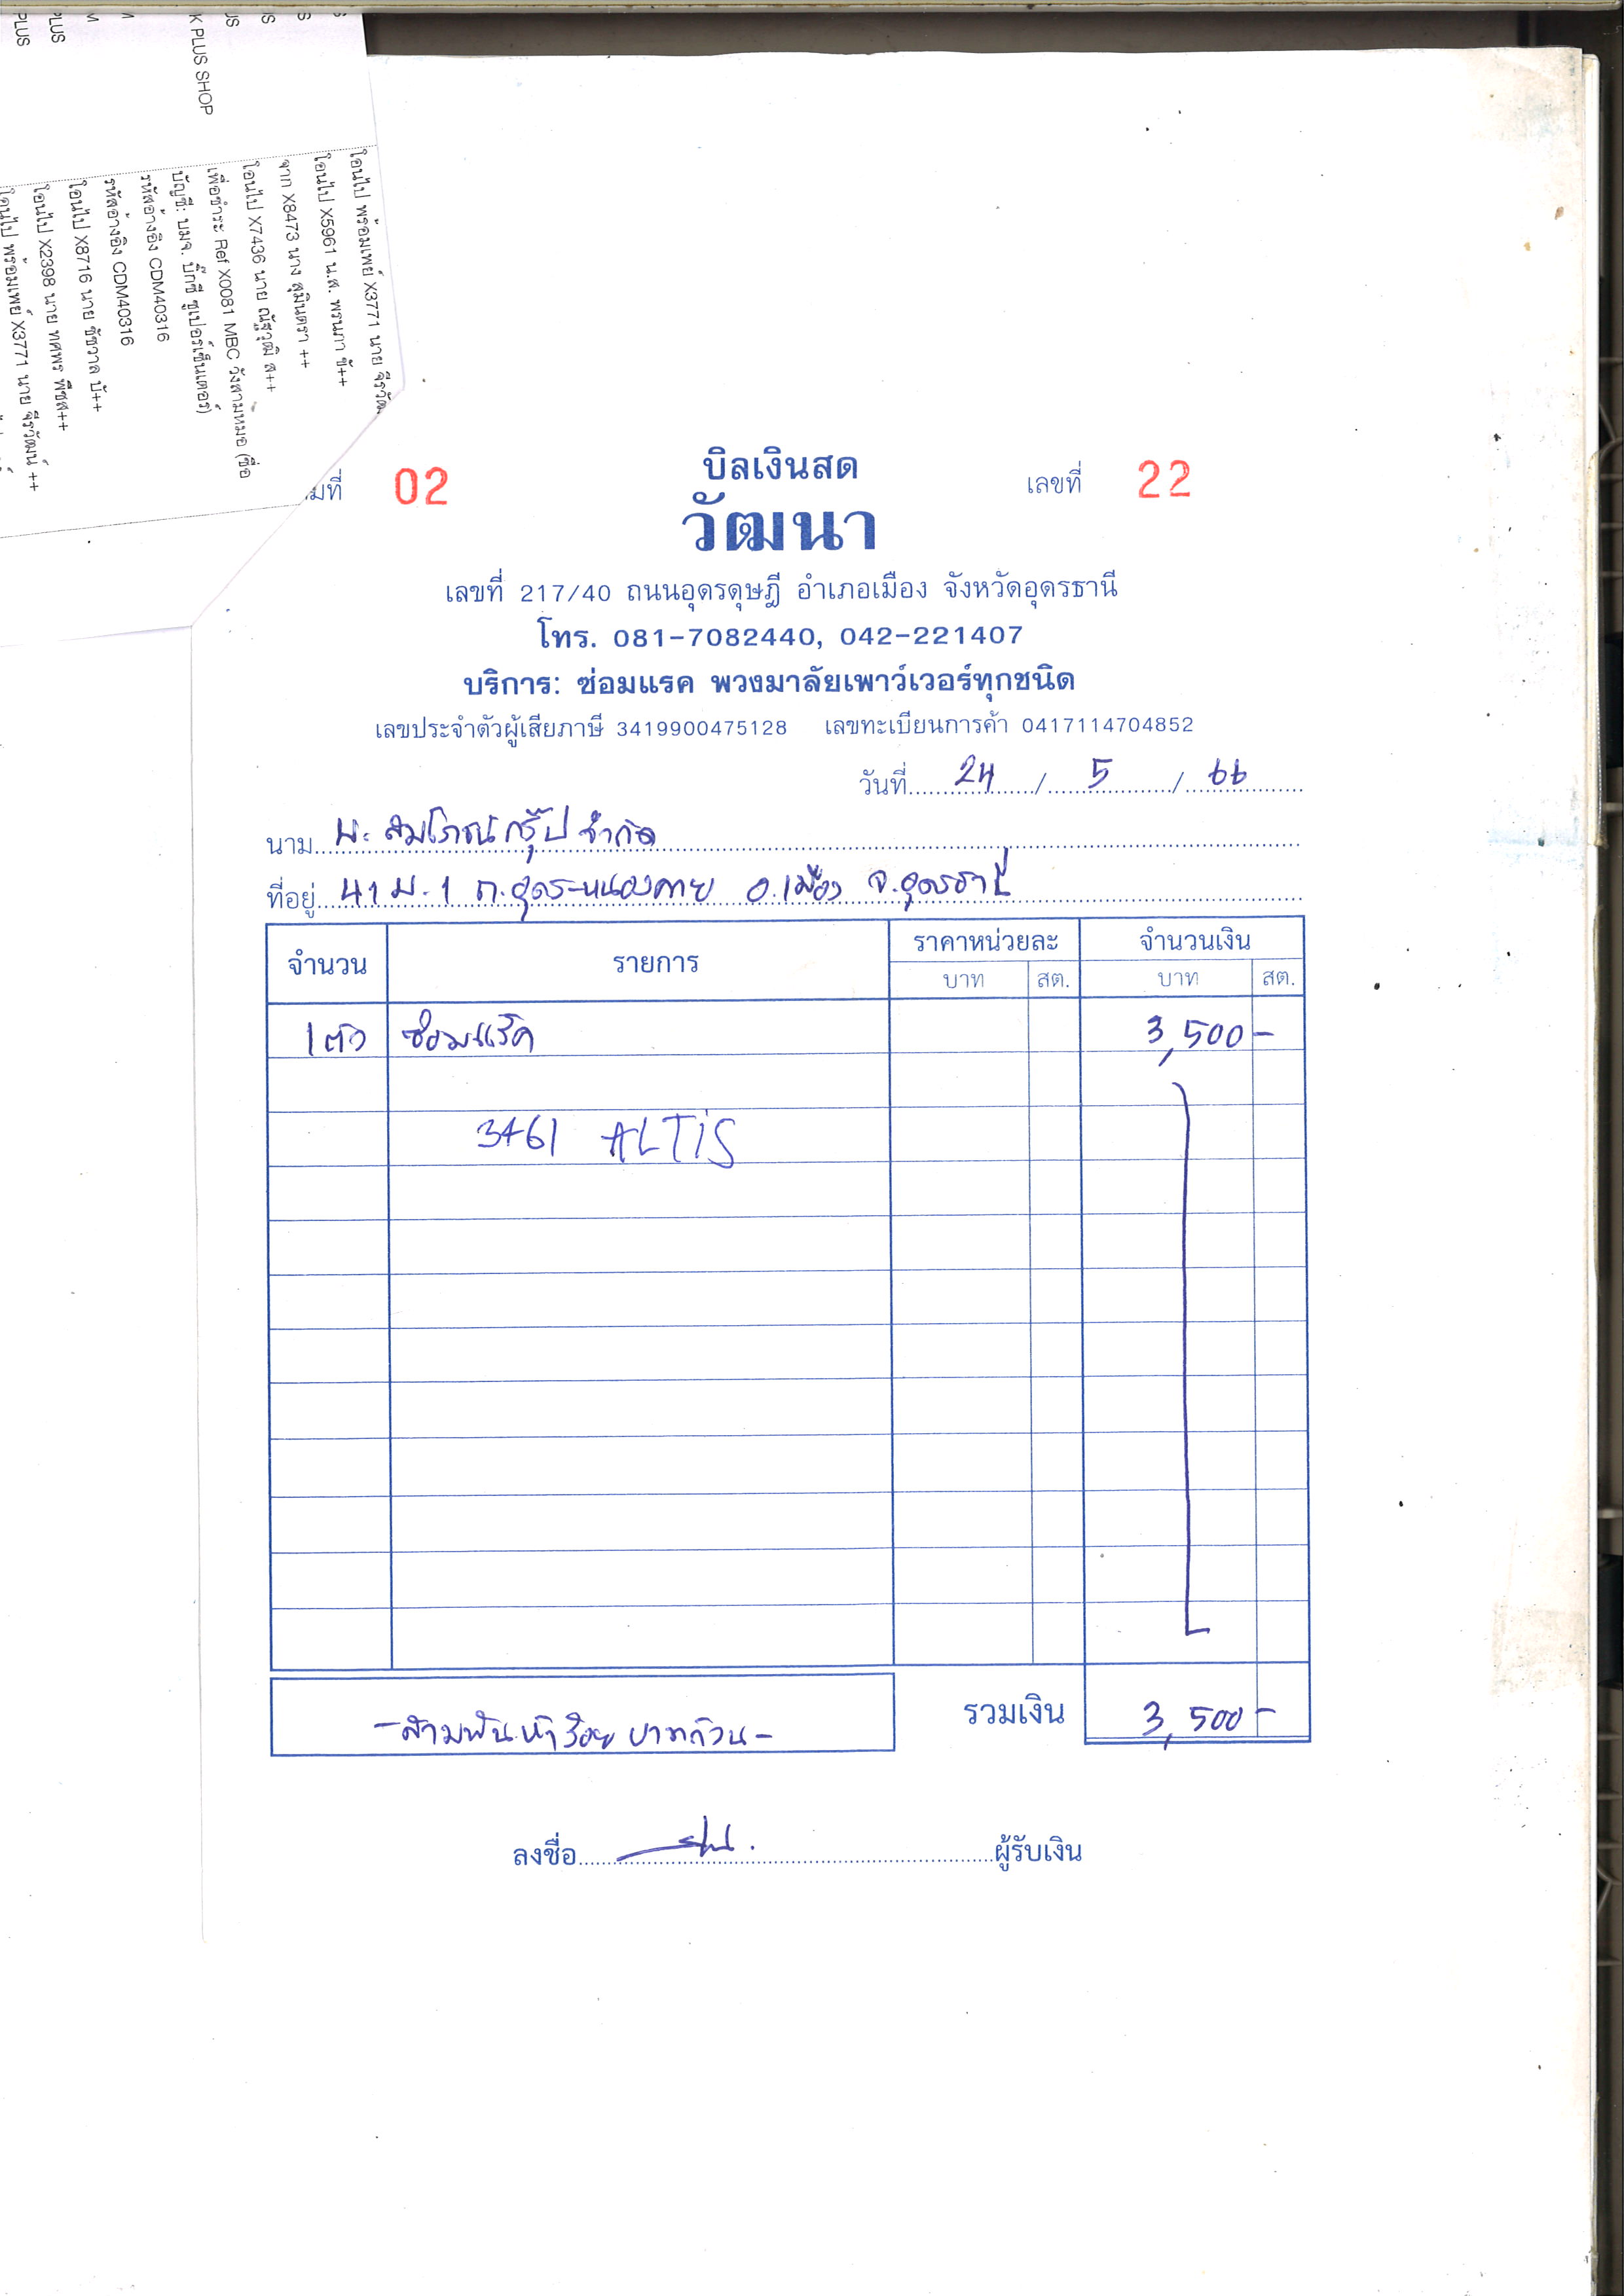 K PLUS SHOP
โอนไป พร้อมเพย์ X3771 นาย จีรวัฒ
โอนไป X5961 น.ส. พรนภา ขั++
จาก X8473 นาง สุมินตรา ++
โอนไป X7436 นาย ณัฐวุฒิ ส++
เพื่อชำระ Ref X0081 MBC วังสามหมอ (ชื่อ
บัญชี: บมจ. บิ๊กซี ซูเปอร์เซ็นเตอร์)
รหัสอ้างอิง CDM40316
รหัสอ้างอิง CDM40316
โอนไป X8716 นาย ชัชวาล บ้++
โอนไป X2398 นาย ทศพร พืชส++
โอนไป พร้อมเพย์ X3771 นาย จีรวัฒน์ ++
มที่ 02
บิลเงินสด
เลขที่ 22
วัฒนา
เลขที่ 217/40 ถนนอุดรดุษฎี อำเภอเมือง จังหวัดอุดรธานี
โทร. 081-7082440, 042-221407
บริการ: ซ่อมแรค พวงมาลัยเพาว์เวอร์ทุกชนิด
เลขประจำตัวผู้เสียภาษี 3419900475128 เลขทะเบียนการค้า 0417114704852
วันที่ 24 / 5 / 66
นาม บ. สมโภชน์กรุ๊ป จำกัด
ที่อยู่ 41 ม.1 ถ.อุดร-หนองคาย อ.เมือง จ.อุดรธานี
จำนวน รายการ ราคาหน่วยละ จำนวนเงิน
บาท สต. บาท สต.
1 ตัว ซ่อมแร็ค 3,500 -
3461 ALTiS
- สามพันห้าร้อยบาทถ้วน - รวมเงิน 3,500 -
ลงชื่อ ผู้รับเงิน